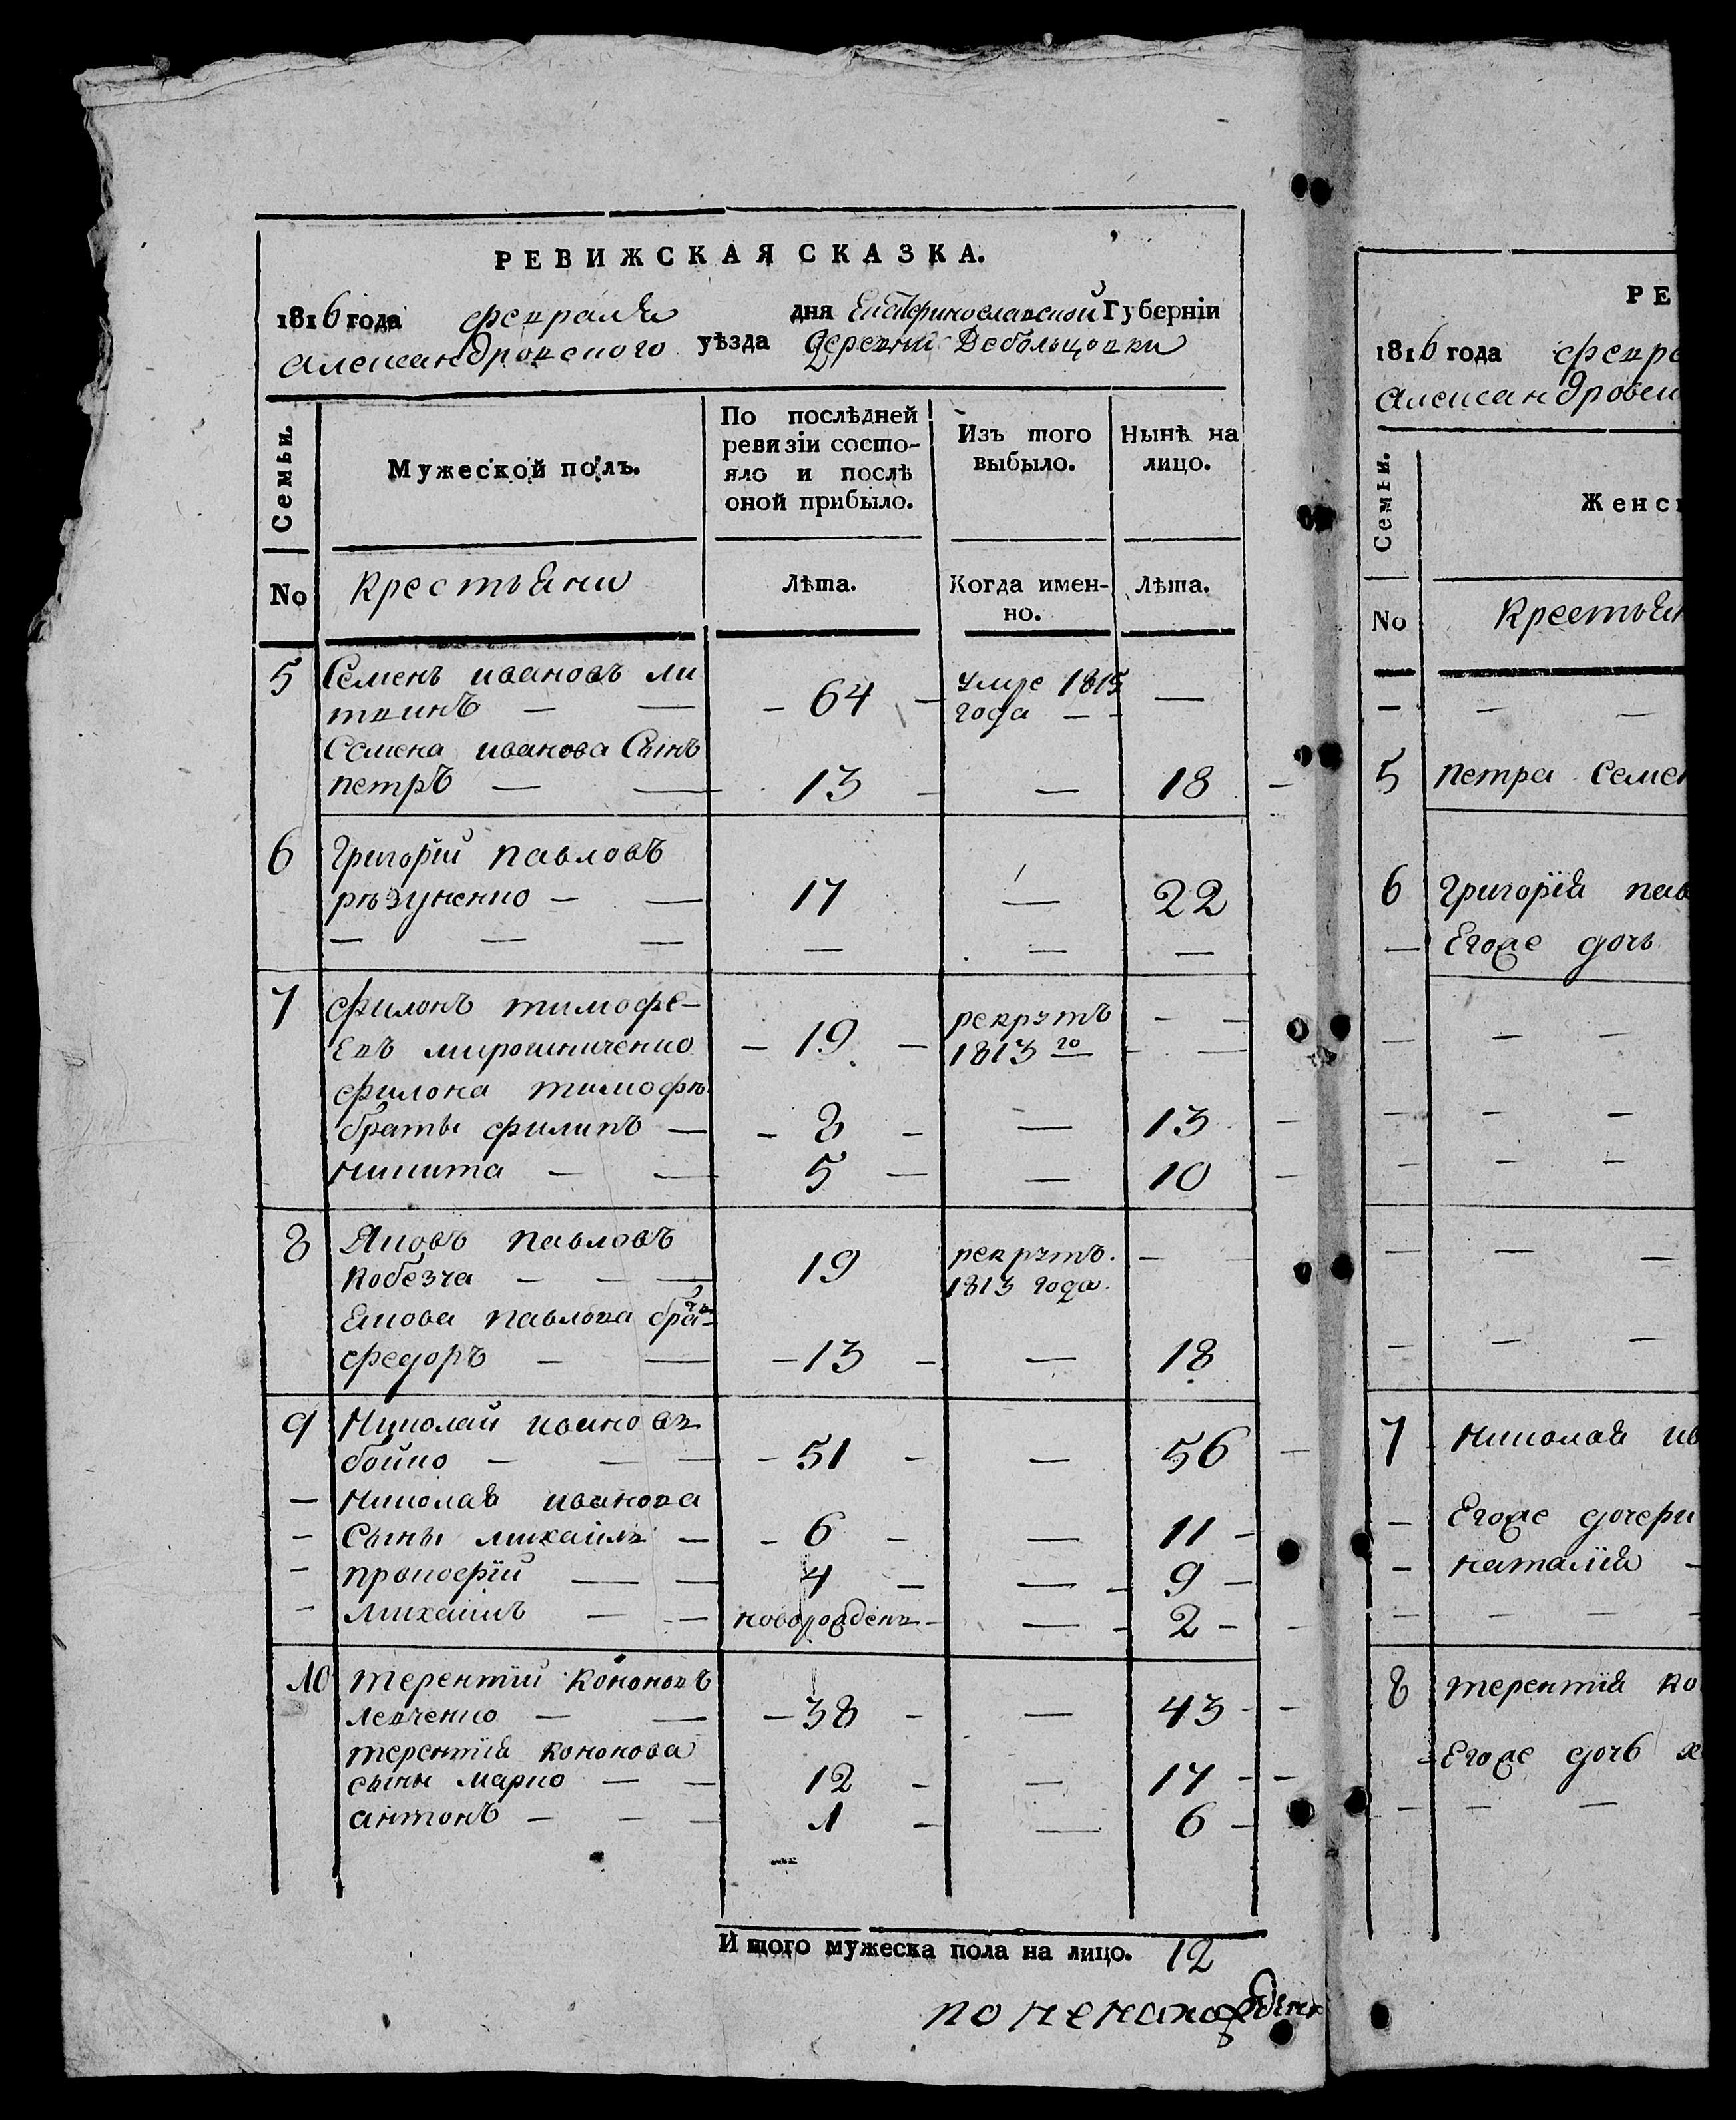 РЕВИЖСКАЯ СКАЗКА.
1816 года февраля дня Екатеринославской Губерніи
александровского уѣзда деревни Дебольцовки
Семьи.
Мужеской полъ.
По послѣдней ревизіи состо-яло и послѣ оной прибыло.
Изъ того выбыло.
Нынѣ на лицо.
No крестьяни Лѣта. Когда имен-но. Лѣта.
5 Семенъ ивановъ ли
твинъ — — 64 — умре 1815 года — — —
Семена иванова Сынъ
петръ — — 13 — — 18 —
6 Григорїй павловъ
рѣзуненко — — 17 — 22
— — — — — —
7 филонъ тимофе-
евъ мирошниченко — 19 — рекрутъ 1813 го — —
филона тимофѣ
браты филипъ — — 8 — — 13 —
никита — — 5 — — 10 —
8 Яковъ павловъ
кобезча — — — 19 рекрутъ. 1813 года. — —
Якова павлова братъ
федоръ — — — 13 — — 18
9 Николай ивановъ
бойко — — — — 51 — — 56 —
— николая иванова
— Сыны михаилъ — — 6 — — 11 —
— прокофїй — — 4 — — — 9 —
— михаилъ — — — новорожденъ — — — 2 — —
10 терентїй кононовъ
левченко — — — 38 — — 43 — —
терентїя кононова
сыны марко — — 12 — — 17 — —
антонъ — — — 1 — — 6 —
Итого мужеска пола на лицо. 12
РЕ
1816 года февра
александровск
Семьи.
Женс
No крестьян
— — —
5 петра Семен
6 Григорїя пав
— Егоже дочь
— — —
— — —
— — —
— — —
— — —
7 николая ив
— Егоже дочери
— наталїя —
— — — —
8 терентїя ко
— Егоже дочь
— — —